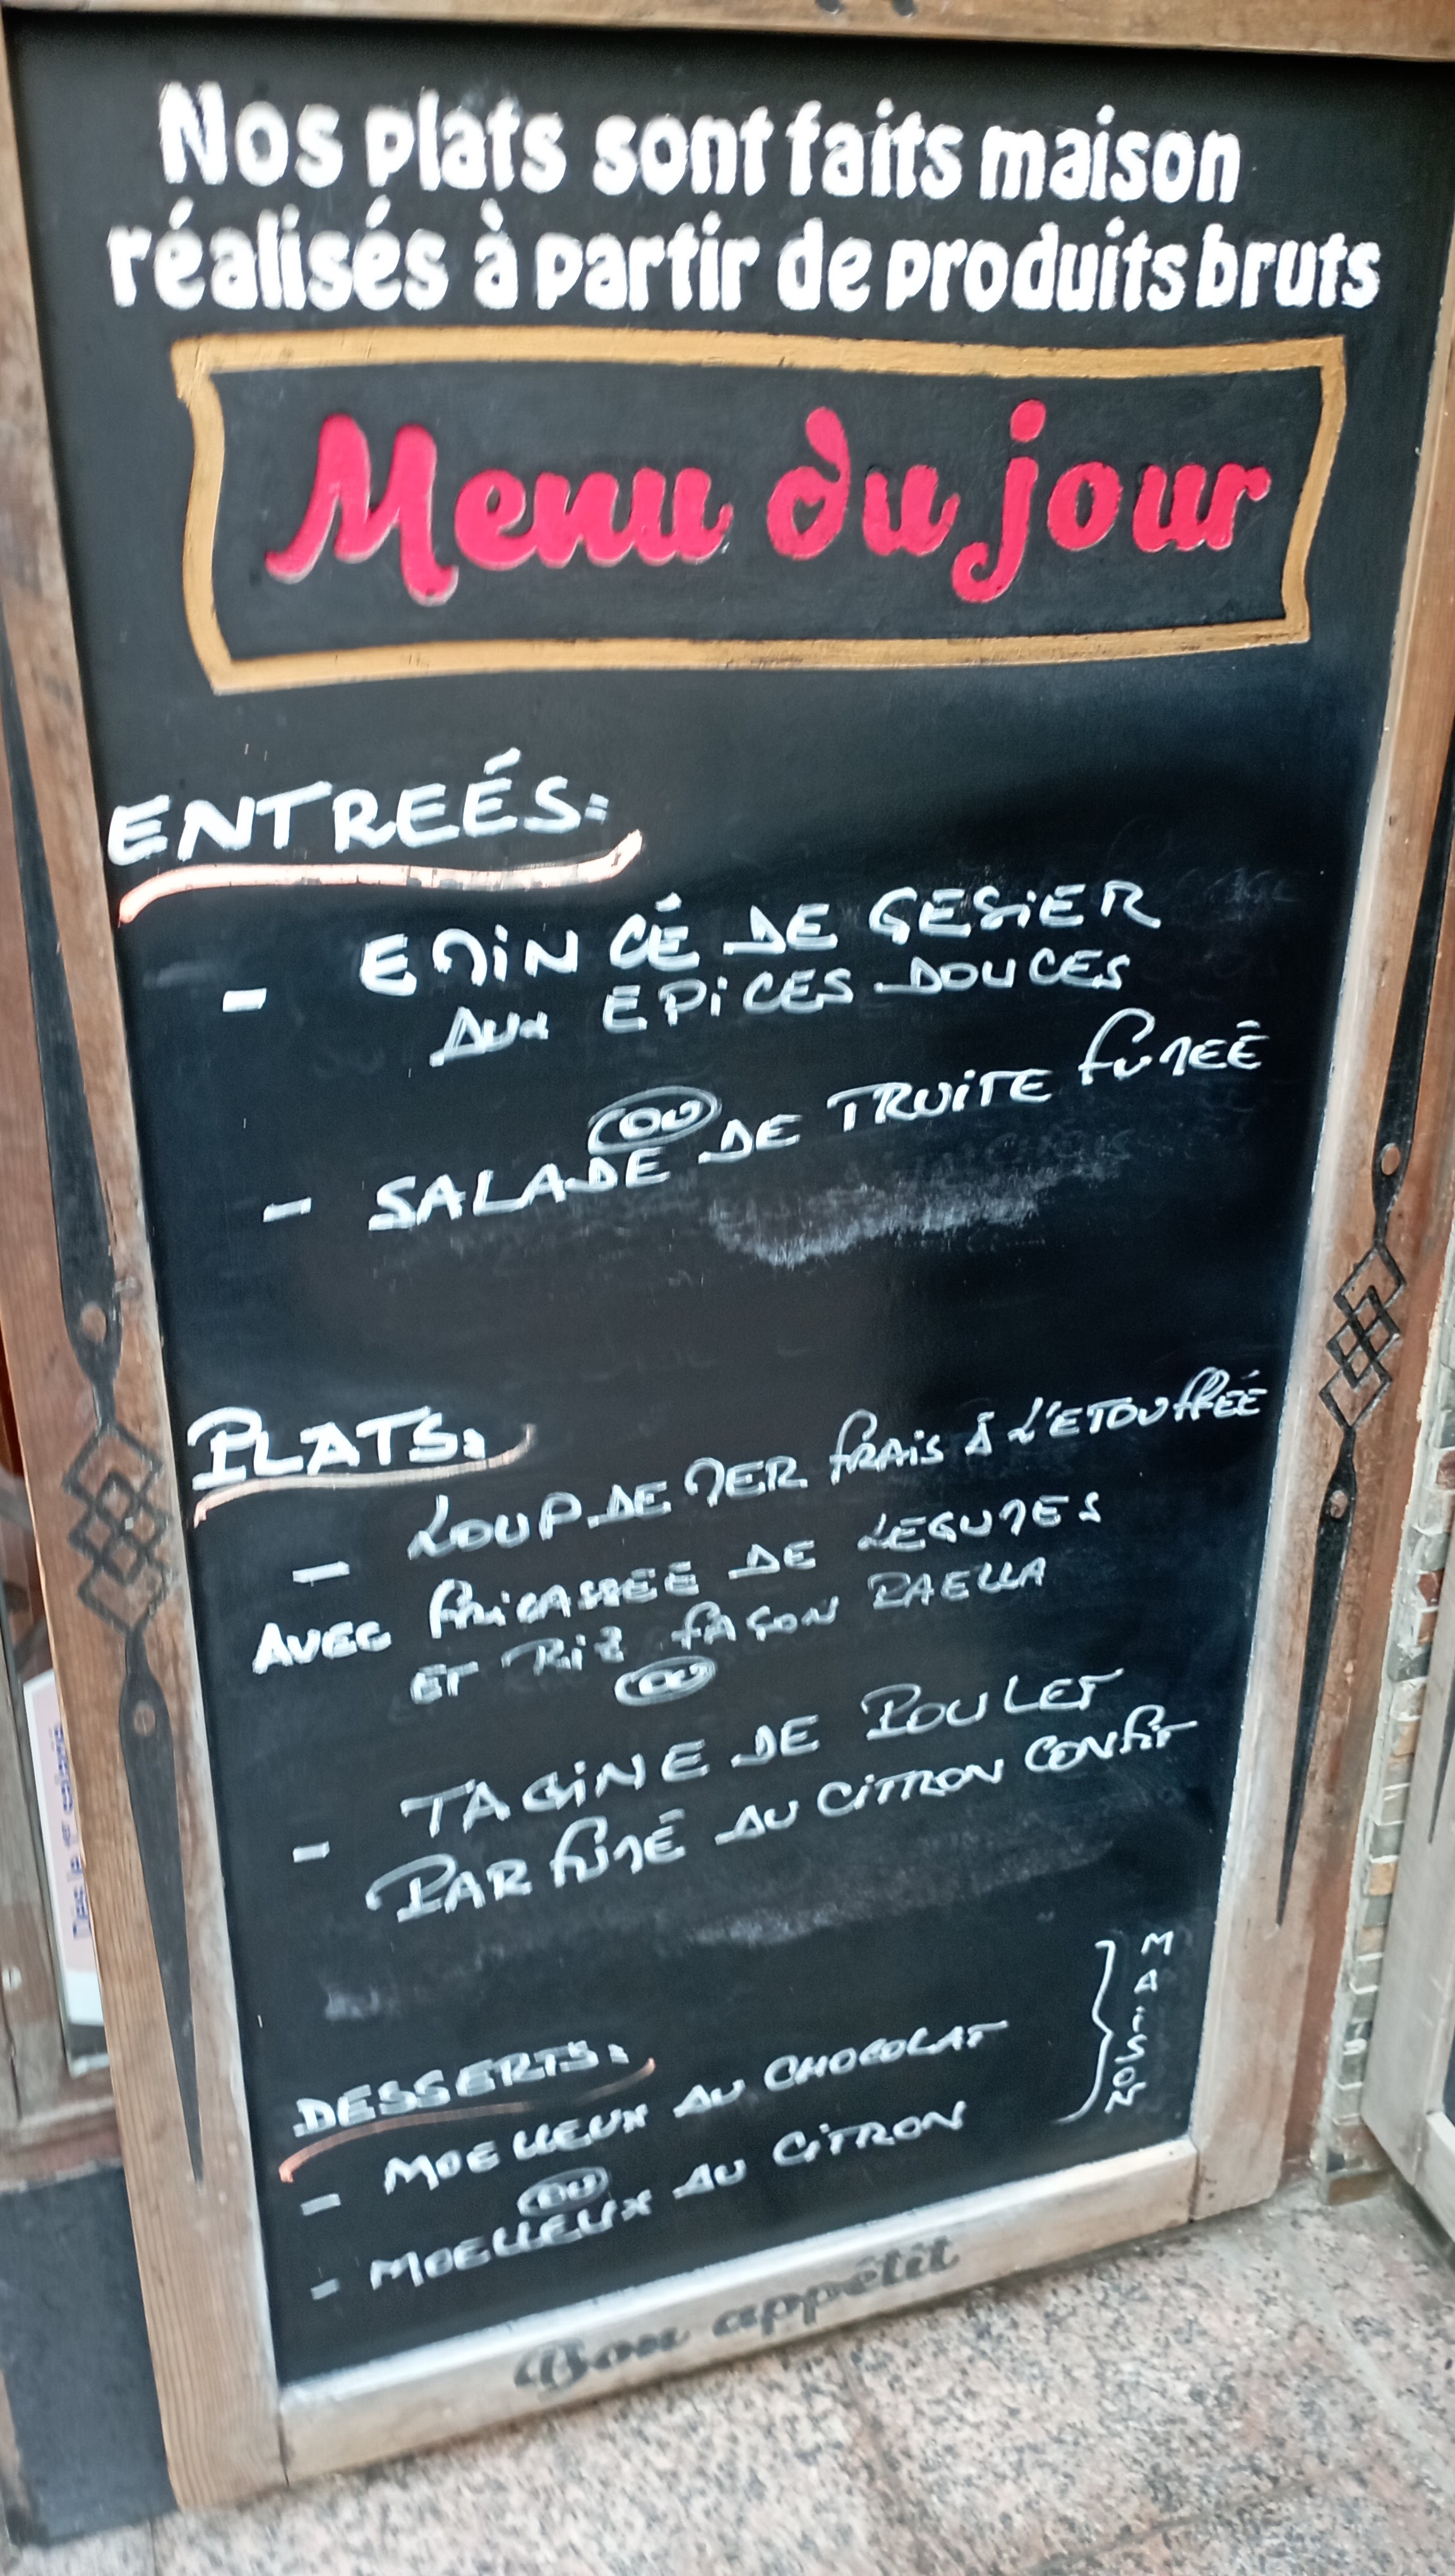 Nos plats sont faits maison
réalisés à partir de produits bruts
Menu du jour
ENTREÉS:
- EMINCÉ DE GESIER
AUX EPICES DOUCES
OU
- SALADE DE TRUITE FUMEÉ
PLATS:
- LOUP DE MER FRAIS À L'ETOUFFÉE
AVEC FRICASSEE DE LEGUMES
ET RIZ FAÇON PAELLA
OU
- TAGINE DE POULET
PARFUMÉ AU CITRON CONFIT
DESSERTS:
- MOELLEUX AU CHOCOLAT
OU
- MOELLEUX AU CITRON
MAISON
Bon appétit